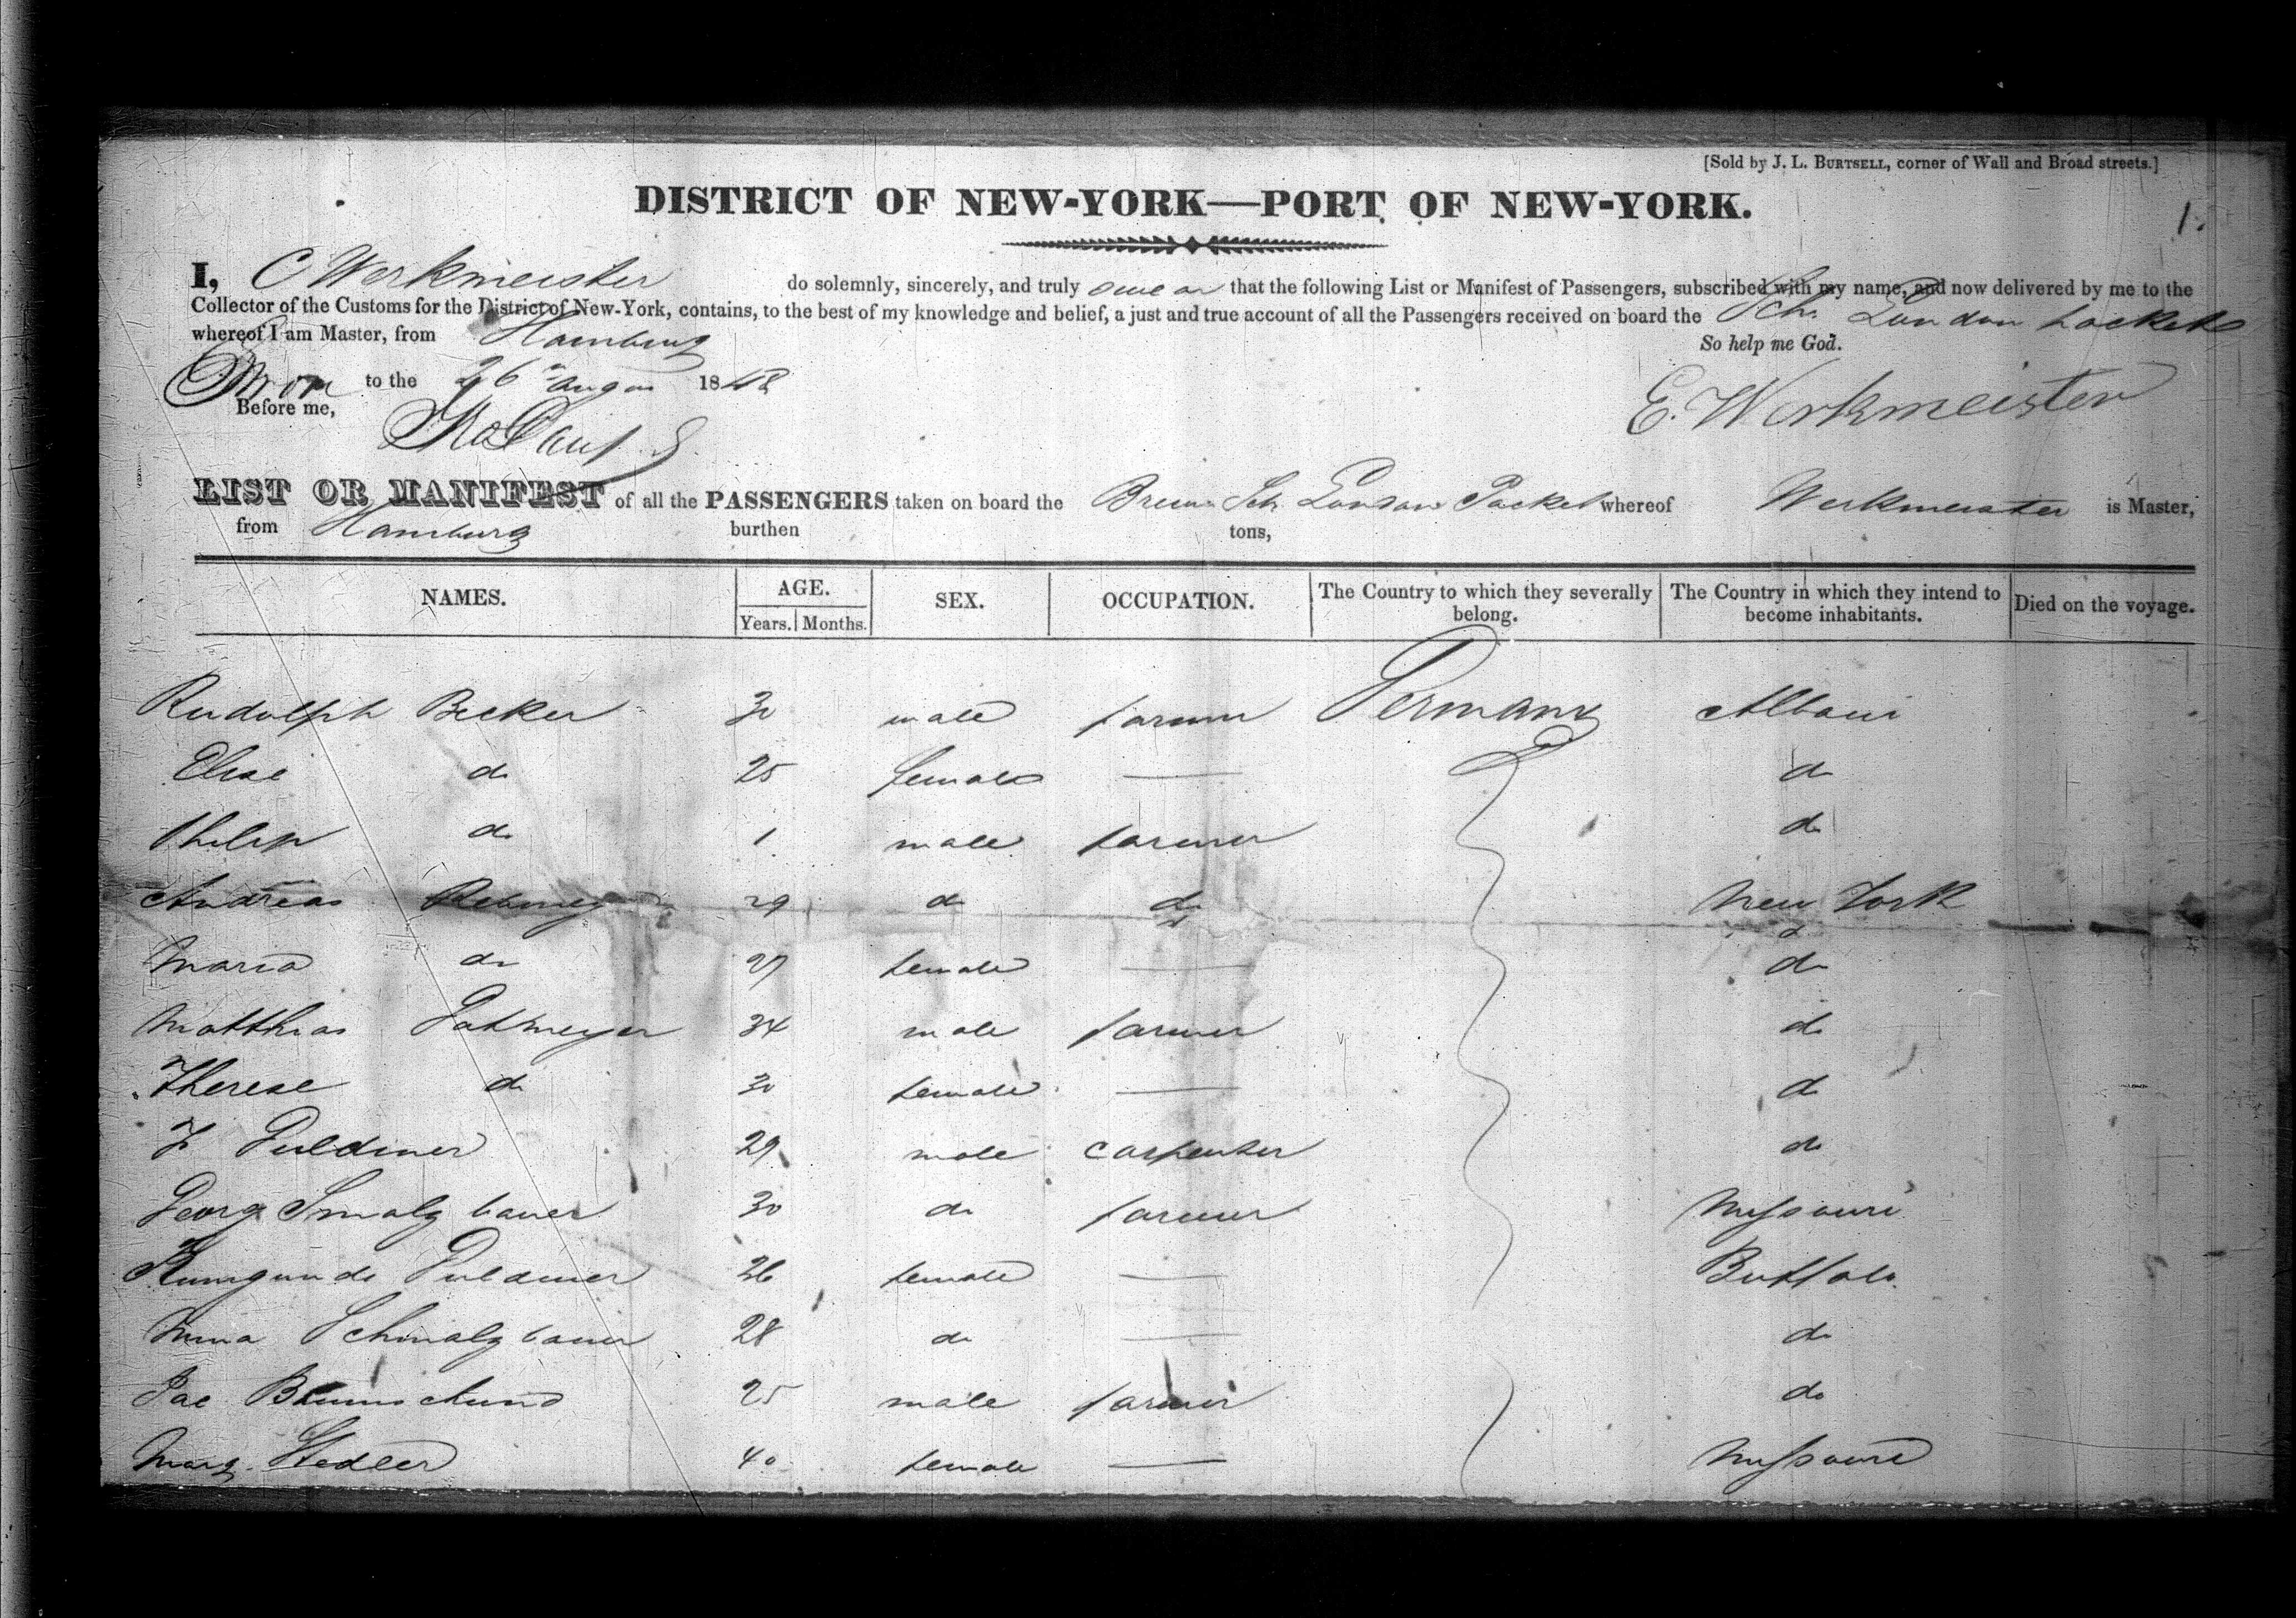 [Sold by J. L. BURTSELL, corner of Wall and Broad streets.]
DISTRICT OF NEW-YORK—PORT OF NEW-YORK.
1.
I, C Werkmeister do solemnly, sincerely, and truly swear that the following List or Manifest of Passengers, subscribed with my name, and now delivered by me to the
Collector of the Customs for the District of New-York, contains, to the best of my knowledge and belief, a just and true account of all the Passengers received on board the Sch. London Packet
whereof I am Master, from Hamburg So help me God.
Sworn to the 26 Augu 1848
Before me, E. Werkmeister
LIST OR MANIFEST of all the PASSENGERS taken on board the Brem Sch London Packet whereof Werkmeister is Master,
from Hamburg burthen tons,
NAMES. AGE. SEX. OCCUPATION. The Country to which they severally belong. The Country in which they intend to become inhabitants. Died on the voyage.
Years. Months.
Rudolph Becker 30 male farmer Germany Albani
Elise do 25 female — do
Philip do 1 male farmer do
Andreas 29 do do New York
Maria do 27 female — do
Matthias 34 male farmer do
Therese do 30 female — do
29 male carpenter do
Georg Smalzbauer 30 do farmer Missouri
26 female — Buffalo
Schmalzbauer 28 do — do
25 male farmer do
Marg. Stedler 40 female — Missouri